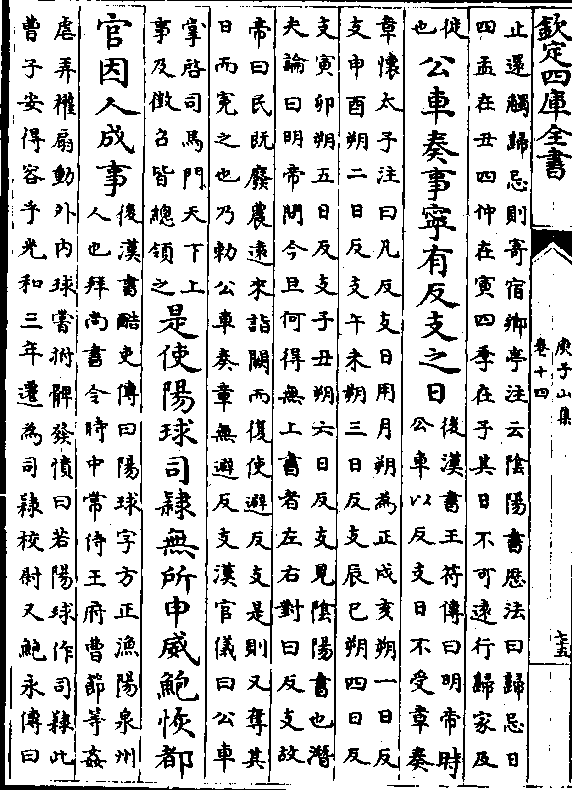 欽定四庫全書
庾子山集
卷十四
七五
止還觸歸忌則寄宿鄉亭注云陰陽書厯法曰歸忌日
四孟在丑四仲在寅四季在子其日不可遠行歸家及
徙
也
公車奏事寧有反支之日
後漢書王符傳曰明帝時
公車以反支日不受章奏
章懷太子注曰凡反支日用月朔為正戌亥朔一日反
支申酉朔二日反支午未朔三日反支辰巳朔四日反
支寅卯朔五日反支子丑朔六日反支見陰陽書也潛
夫論曰明帝問今旦何得無上書者左右對曰反支故
帝曰民既廢農遠來詣闕而復使避反支是則又奪其
日而寃之也乃勅公車奏章無避反支漢官儀曰公車
掌啓司馬門天下上
事及徵召皆總領之
是使陽球司隸無所申威鮑恢都
官因人成事
後漢書酷吏傳曰陽球字方正漁陽泉州
人也拜尚書令時中常侍王府曹節等姦
虐弄權扇動外内球嘗拊髀發憤曰若陽球作司隸此
曹子安得容乎光和三年遷為司隸校尉又鮑永傳曰